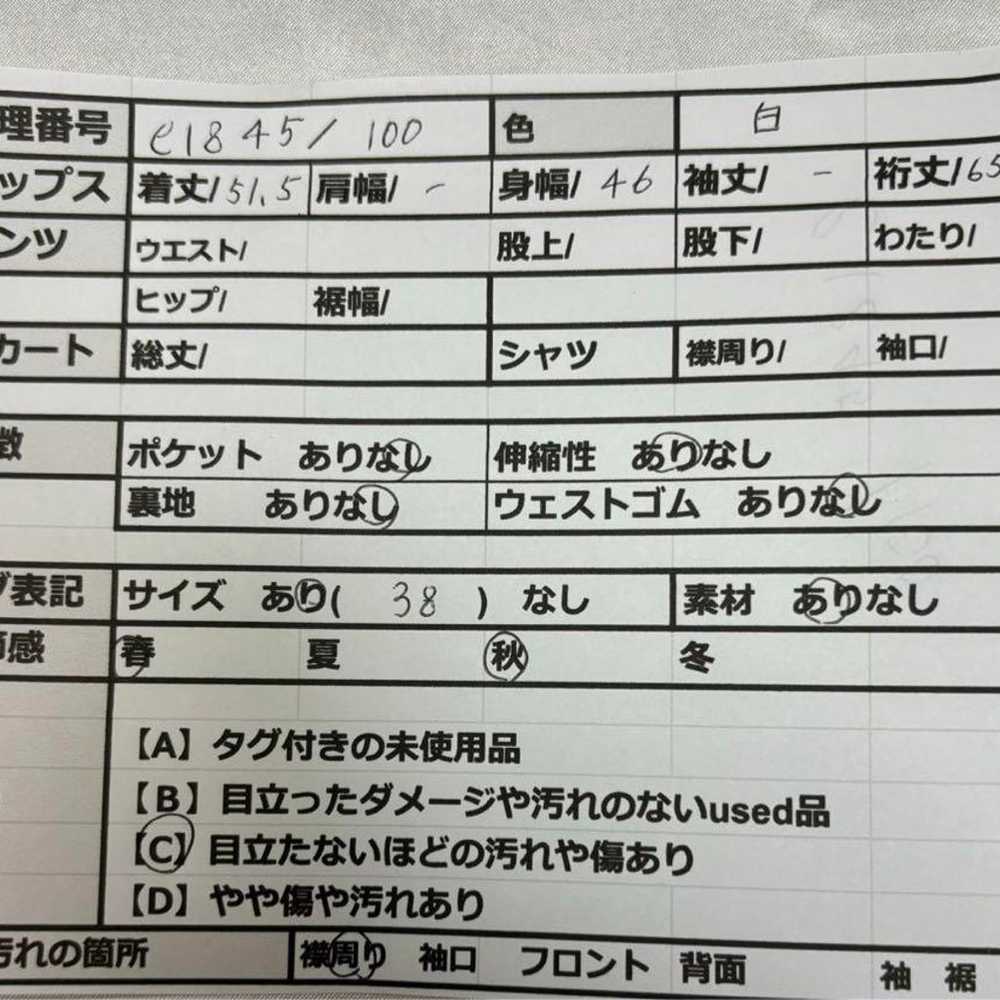 理番号 e1845/100 色 白
ップス 着丈/51.5 肩幅/ - 身幅/ 46 袖丈/ - 裄丈/65
ンツ ウエスト/ 股上/ 股下/ わたり/
ヒップ/ 裾幅/
カート 総丈/ シャツ 襟周り/ 袖口/
数 ポケット ありなし 伸縮性 ありなし
裏地 ありなし ウェストゴム ありなし
グ表記 サイズ あり( 38 ) なし 素材 ありなし
節感 春 夏 秋 冬
【A】タグ付きの未使用品
【B】目立ったダメージや汚れのないused品
【C】目立たないほどの汚れや傷あり
【D】やや傷や汚れあり
汚れの箇所 襟周り 袖口 フロント 背面 袖 裾